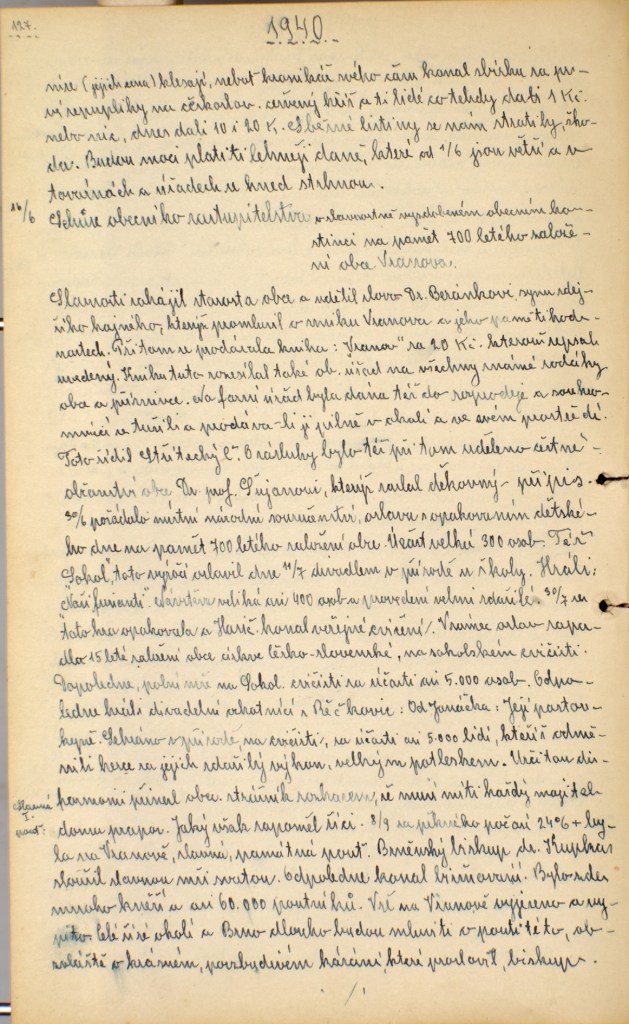 127.
1940.
níze (jejich cena) klesají, neboť kronikář svého času konal sbírku za pr-
vé republiky na českoslov. červený kříž a ti lidé co tehdy dali 1 Kč.
nebo nic, dnes dali 10 i 20 K. Sběrné listiny se nám ztratily, ško-
da. Budou moci platiti lehčeji daně, které od 1/6 jsou větší a v
továrnách a úřadech se hned strhnou.
16/6 Schůze obecního zastupitelstva v slavnostně vyzdobeném obecním ho-
stinci na paměť 700 letého založe-
ní obce Vranova.
Slavnosti zahájil starosta obce a udělil slovo Dr. Beránkovi, synu zdej-
šího hajného, kterýž promluvil o vzniku Vranova a jeho pamětihod-
nostech. Při tom se prodávala kniha: "Vranov" za 20 Kč. kterouž sepsal
uvedený. Knihu tuto rozesílal také ob. úřad na všechny známé rodáky
obce a příznivce. Na farní úřad byla dána též do rozprodeje a soukro-
mníci se tužili a prodáva-li ji pilně v okolí a ve svém prostředí.
Toto řídil Střítecký C. O zásluhy bylo též při tom uděleno čestné
občanství obce Dr. prof. Šujanovi, kterýž zaslal děkovný přípis.
30/6 pořádalo místní národní souručenství, oslavu s opakováním dětské-
ho dne na paměť 700 letého založení obce. Účast velká 300 osob. Též
"Sokol" toto výročí oslavil dne 11/7 divadlem v přírodě u školy. Hráli:
"Naši furianti". Návštěva veliká asi 400 osob a provedení velmi zdařilé. 30/7 se
tato hra opakovala a Hasič. konal veřejné cvičení. Vranov oslav
15 leté založení obce církve česko-slovenské, na sokolském cvičišti.
Dopoledne, polní mše na Sokol. cvičišti za účasti asi 5.000 osob. Odpo-
ledne hráli divadelní ochotníci z Řečkovic: Od Janáčka: Její pastor-
kyně. Sehráno v přírodě, na cvičišti, za účasti asi 5.000 lidí, kteříž odmě-
nili herce za jejich zdařilý výkon, velkým potleskem. Určitou dis-
harmonii přinesl obec. strážník rozkazem, že musí míti každý majitel
domu prapor. Jaký však zapoměl říci. 8/9 za pěkného počasí 24% + by-
la na Vranově, slavná, památná pouť. Brněnský biskup dr. Kupka
sloužil slavnou mši svatou. Odpoledne konal biřmování. Bylo zde
mnoho kněží a asi 60.000 poutníků. Vše na Vranově vyjezeno a vy-
pito. Celé širé okolí a Brno dlouho budou mluviti o pouti této, ob-
zvláště o krásném, povzbudivém kázání, které proslovil, biskup.
Slavná
I.
pouť: